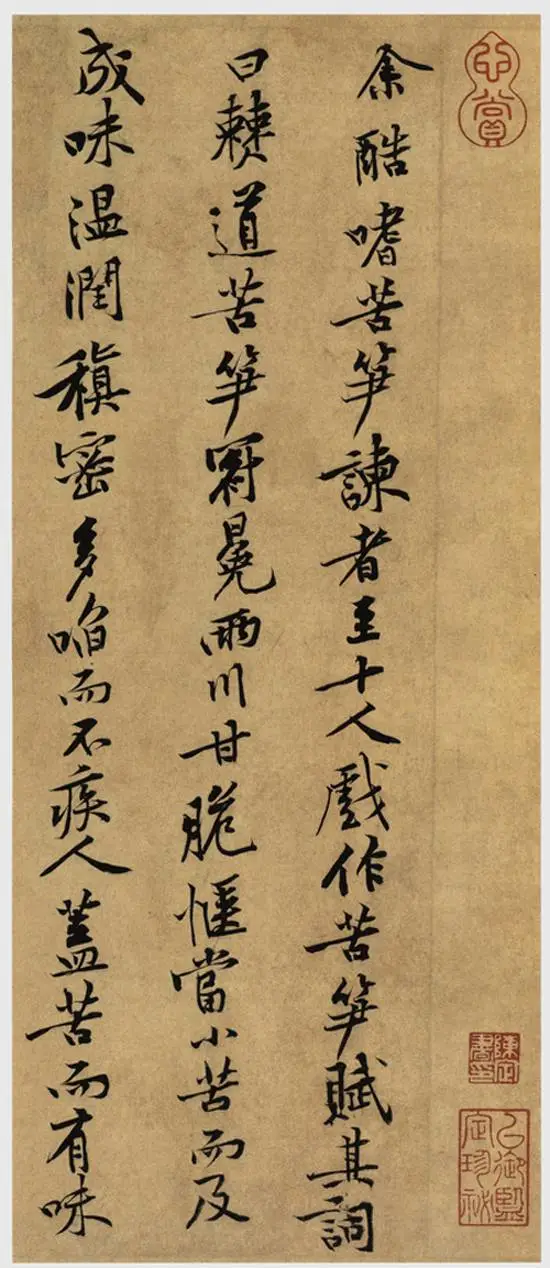 心賞
余酷嗜苦笋諫者至十人戲作苦笋賦其詞
曰僰道苦笋冠冕兩川甘脆愜當小苦而及
成味温潤稹密多啗而不疾人蓋苦而有味